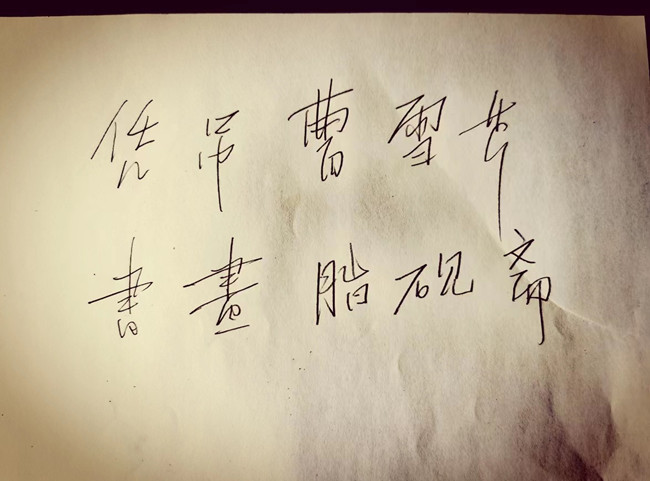 凭吊曹雪芹
書畫脂砚斋